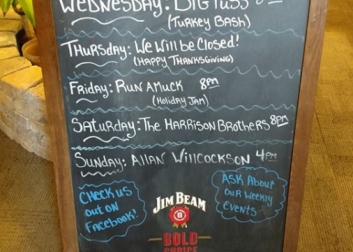 WEDNESDAY: BIG
(TURKEY BASH)
THURSDAY: WE WILL BE CLOSED!
(HAPPY THANKSGIVING)
FRIDAY: RUN AMUCK 8PM
(Holiday JAM)
SATURDAY: THE HARRISON BROTHERS 8PM
SUNDAY: ALLAN WILLCOCKSON 4PM
CHECK US
OUT ON
FACEBOOK!
ASK ABOUT
OUR WEEKLY
EVENTS
JIM BEAM
BOLD
CHOICE